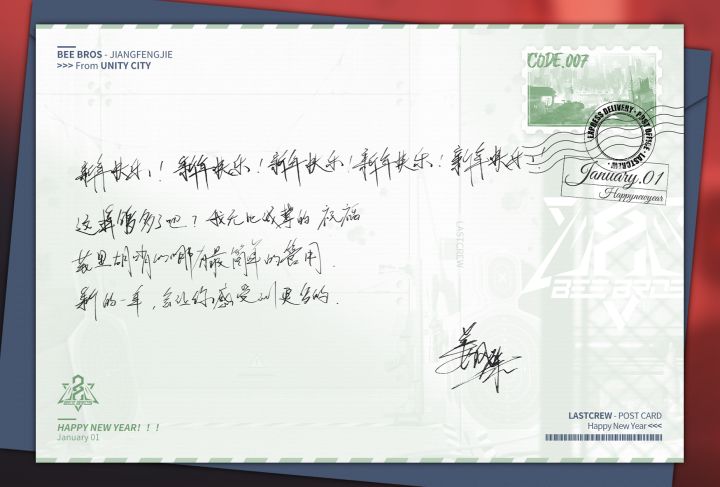 BEE BROS - JIANGFENGJIE
>>> From UNITY CITY
CODE.007
EXPRESS DELIVERY · POST OFFICE · LASTCREW ·
January.01
Happynewyear
新年快乐!! 新年快乐! 新年快乐! 新年快乐! 新年快乐!
这样够多了吧? 我无比诚挚的祝福
花里胡哨的哪有最简单的管用.
新的一年, 会让你感受到更多的.
LASTCREW
BEE BROS
HAPPY NEW YEAR! ! !
January 01
LASTCREW - POST CARD
Happy New Year <<<